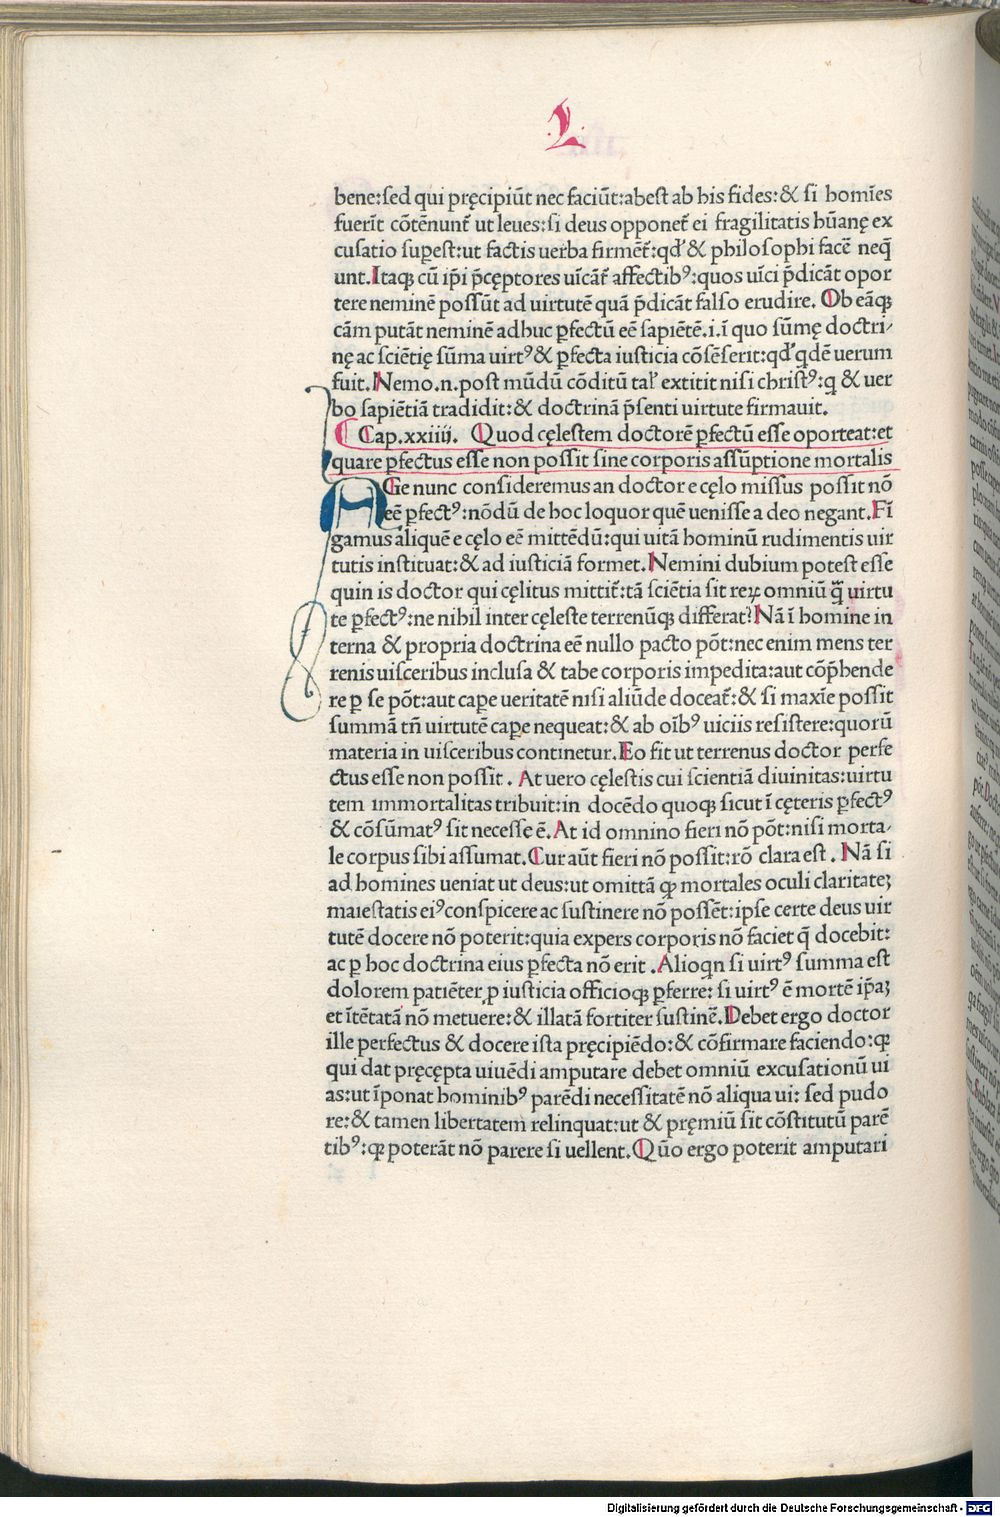 .L.
bene:sed qui pręcipiūt nec faciūt:abest ab his fides:& si homīes
fuerīt cōtēnunt᷑ ut leues:si deus opponet᷑ ei fragilitatis hūanę ex
cusatio suꝑest:ut factis uerba firmēt᷑:qđ & philosophi facē neq̄
unt.Itaqꝫ cū ip̄i p̄cęptores uīcāt᷑ affectibꝰ:quos uīci p̄dicāt opor
tere neminē possūt ad uirtutē quā p̄dicāt falso erudire. Ob eāqꝫ
cām putāt neminē adhuc ꝑfectū eē sapiētē.i.ī quo sūmę doctri⸗
nę ac sciētię sūma uirtꝰ & ꝑfecta iusticia cōsēserit:qđ qdē uerum
fuit. Nemo.n.post mūdū cōditū tal᷑ extitit nisi christꝰ:q & uer
bo sapiētiā tradidit:& doctrinā p̄senti uirtute firmauit.
Cap.xxiiij. Quod cęlestem doctorē ꝑfectū esse oporteat:et
quare ꝑfectus esse non possit sine corporis assūptione mortalis
AGe nunc consideremus an doctor e cęlo missus possit nō
eē ꝑfectꝰ:nōdū de hoc loquor quē uenisse a deo negant.Fī
gamus aliquē e cęlo eē mittēdū:qui uitā hominū rudimentis uir
tutis instituat:& ad iusticiā formet. Nemini dubium potest esse
quin is doctor qui cęlitus mittit᷑:tā sciētia sit reꝝ omniū q̄ꝫ uirtu
te ꝑfectꝰ:ne nihil inter cęleste terrenūqꝫ differat? Nā ī homine in
terna & propria doctrina eē nullo pacto pōt:nec enim mens ter
renis uisceribus inclusa & tabe corporis impedita:aut cōp̄hende
re ꝑ se pōt:aut caꝑe ueritatē nisi aliūde doceat᷑:& si maxīe possit
summā tn̄ virtutē caꝑe nequeat:& ab oībꝰ uiciis resistere:quorū
materia in uisceribus continetur. Eo fit ut terrenus doctor perfe
ctus esse non possit . At uero cęlestis cui scientiā diuinitas:uirtu
tem immortalitas tribuit:in docēdo quoqꝫ sicut ī cęteris ꝑfectꝰ
& cōsūmatꝰ sit necesse ē. At id omnino fieri nō pōt:nisi morta⸗
le corpus sibi assumat. Cur aūt fieri nō possit:rō clara est . Nā si
ad homines ueniat ut deus:ut omittā ꝙ mortales oculi claritateꝫ
maiestatis eiꝰ conspicere ac sustinere nō possēt:ipse certe deus uir
tutē docere nō poterit:quia expers corporis nō faciet q̄ docebit:
ac ꝑ hoc doctrina eius ꝑfecta nō erit . Alioqn si uirtꝰ summa est
dolorem patiēter ꝓ iusticia officioqꝫ ꝑferre: si uirtꝰ ē mortē ip̄aꝫ
et ītētatā nō metuere:& illatā fortiter sustinē. Debet ergo doctor
ille perfectus & docere ista pręcipiēdo:& cōfirmare faciendo:ꝙ
qui dat pręcępta uiuēdi amputare debet omniū excusationū ui
as:ut īponat hominibꝰ parēdi necessitatē nō aliqua ui: sed pudo
re:& tamen libertatem relinquat:ut & pręmiū sit cōstitutū parē
tibꝰ:ꝙ poterāt nō parere si uellent. Quō ergo poterit amputari
Digitalisierung gefördert durch die Deutsche Forschungsgemeinschaft - DFG